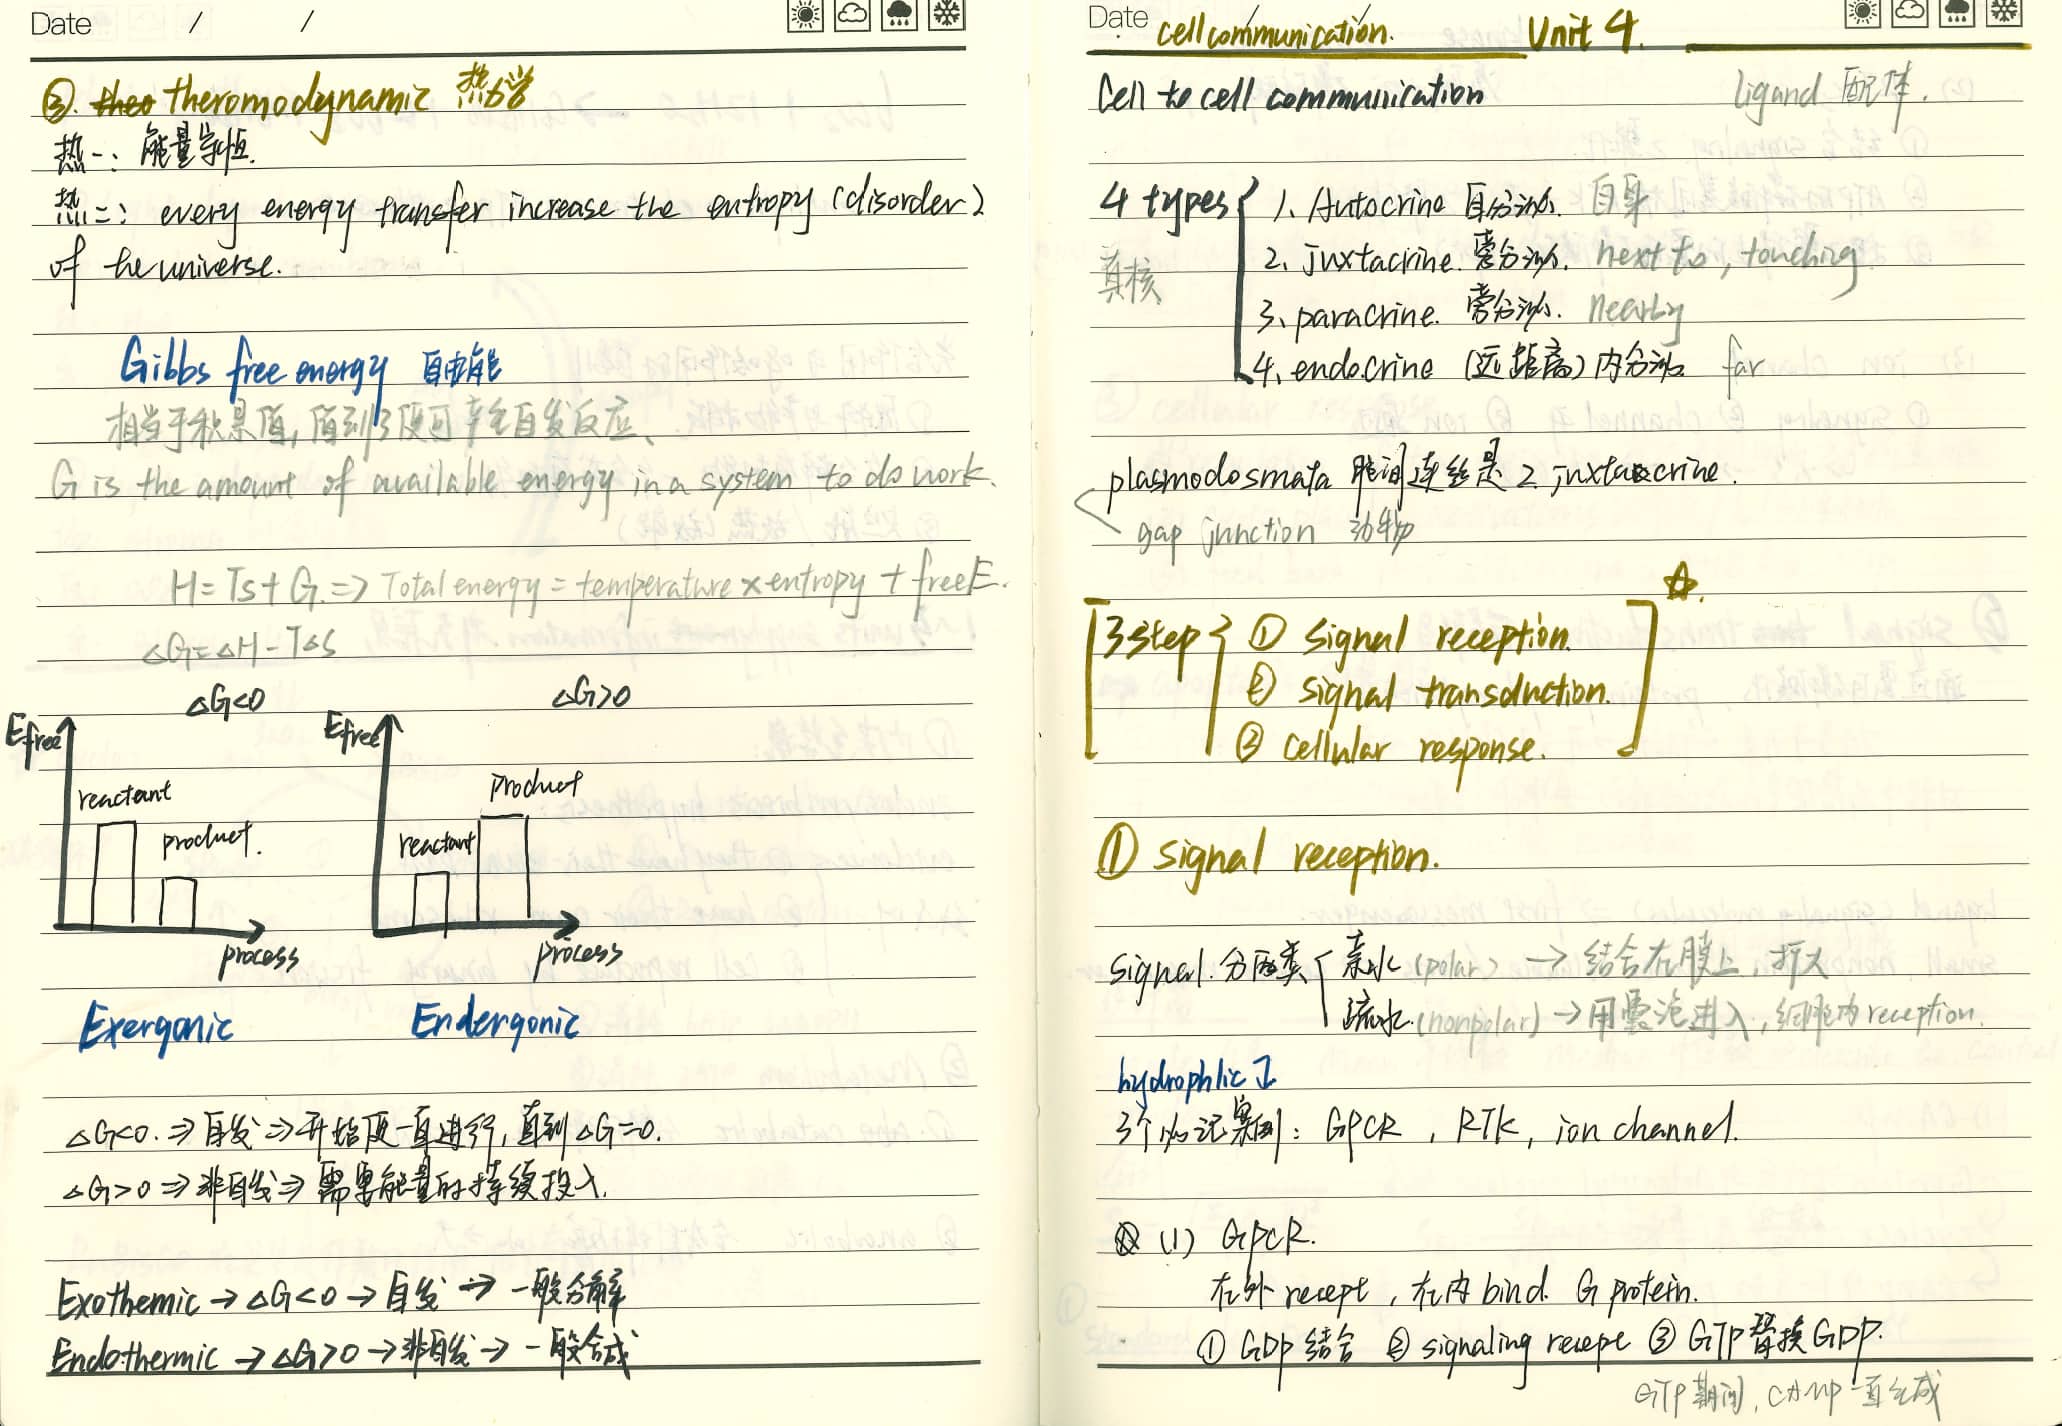 Date / /
③. theo theromodynamic 热力学
热一: 能量守恒.
热二: every energy transfer increase the entropy (disorder)
of the universe.
Gibbs free energy 自由能
相当于积累值, 值到了便可产生自发反应、
G is the amount of available energy in a system to do work.
H=Ts+G. => Total energy = temperature × entropy + free E.
△G=△H-T△S
△G<0 △G>0
Efree Efree
reactant product
product. reactant
process process
Exergonic Endergonic
△G<0. => 自发 => 开始便一直进行, 直到△G=0.
△G>0 => 非自发 => 需要能量的持续投入.
Exothemic → △G<0 → 自发 → 一般分解
Endothermic → △G>0 → 非自发 → 一般合成
Date / /
cell communication. Unit 4.
Cell to cell communication ligand 配体.
4 types { 1、Autocrine 自分泌. 自身
真核 2、juxtacrine. 旁分泌. next to, touching
3、paracrine. 旁分泌. nearby
4、endocrine (远距离) 内分泌 far
plasmodosmata 胞间连丝是 2. juxtacrine.
gap junction 动物
[3 step { ① signal reception. ] ☆.
② signal transduction.
③ cellular response.
① signal reception.
signal. 分两类 { 亲水 (polar) → 结合在膜上, 扩大
疏水. (nonpolar) → 用囊泡进入, 细胞内 reception.
hydrophlic
3个必记案例: GPCR, RTK, ion channel.
(1) GPCR.
在外 recept, 在内 bind G protein.
① GDP 结合 ② signaling recepe ③ GTP替换GDP.
GTP期间, cAMP一直生成